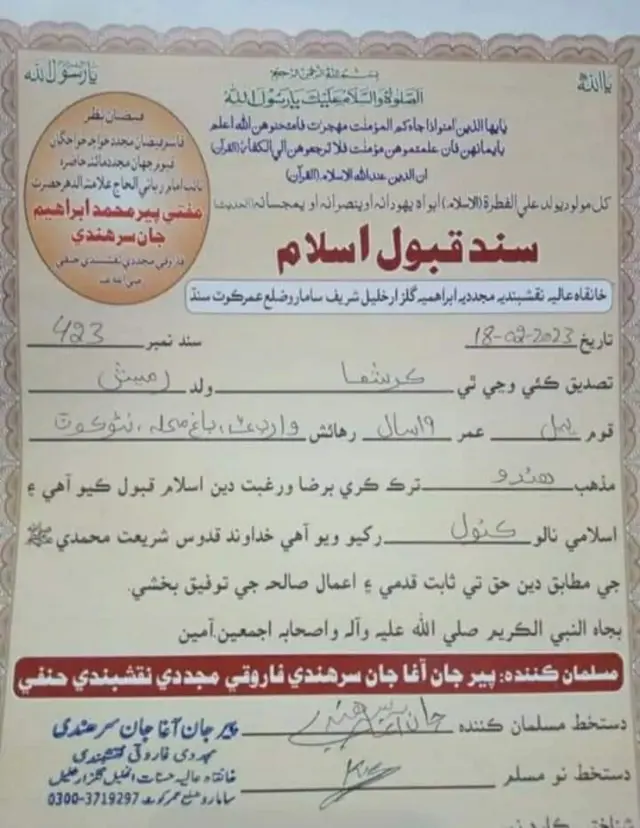 ياالله
بسم الله الرحمن الرحيم
يارسول الله
الصلوٰة والسلام عليك يارسول الله
يايها الذين امنوا اذا جاءكم المؤمنت مهجرت فامتحنوهن الله اعلم
بايمانهن فان علمتموهن مؤمنت فلا ترجعوهن الي الكفار (القرآن)
ان الدين عندالله الاسلام (القرآن)
كل مولود يولد علي الفطرة (الاسلام) ابواه يهودانه اوينصرانه او يمجسانه (الحديث)
فيضان نظر
قاسم فيضان مجدد خواجه خواجگان
قيوم جهان مجدد مائة حاضره
نائب امام رباني الحاج علامة الدهر حضرت
مفتي پير محمد ابراهيم
جان سرهندي
فاروقي مجددي نقشبندي حنفي
سند قبول اسلام
خانقاه عاليه نقشبنديه مجدديه ابراهيميه گلزار خليل شريف سامارو ضلع عمركوت سنڌ
تاريخ 18-02-2023 سند نمبر 423
تصديق ڪئي وڃي ٿي ڪرشما ولد رميش
قوم ڀيل عمر 19 سال رهائش وارڊ باغ محله، نئوڪوٽ
مذهب هندو ترڪ ڪري برضا ورغبت دين اسلام قبول ڪيو آهي ۽
اسلامي نالو ڪنول رکيو ويو آهي خداوند قدوس شريعت محمدي ﷺ
جي مطابق دين حق تي ثابت قدمي ۽ اعمال صالحه جي توفيق بخشي.
بجاه النبي الكريم صلي الله عليه وآله واصحابه اجمعين. آمين
مسلمان كننده: پير جان آغا جان سرهندي فاروقي مجددي نقشبندي حنفي
دستخط مسلمان كننده
پير جان آغا جان سرهندی
مجددی فاروقی نقشبندی
خانقاه عاليه گلزار خليل
سامارو ضلع عمركوٹ 0300-3719297
دستخط نو مسلم